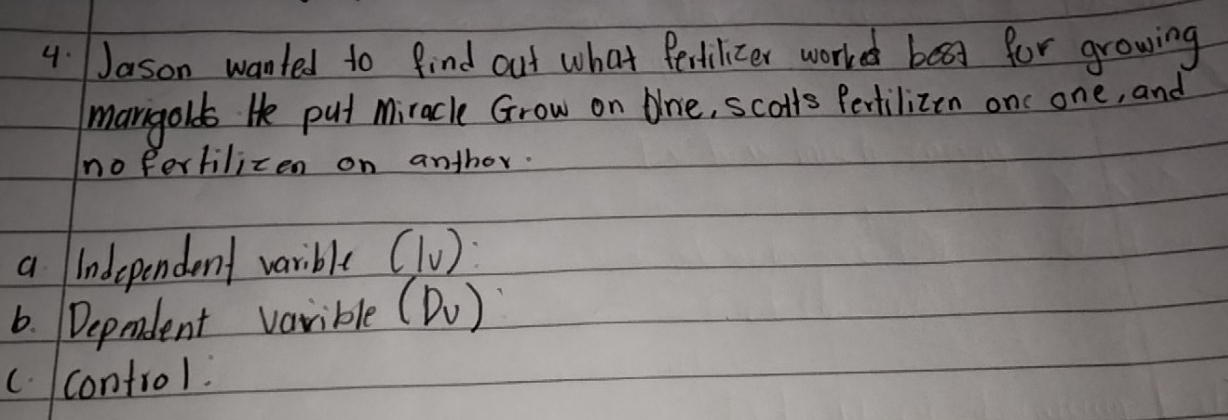 4. Jason wanted to find out what fertilizer worked best for growing
marigolds He put Miracle Grow on One, scotts fertilizen one one, and
no fertilizen on anthor.
a. Independent varible (Iv):
b. Dependent varible (Dv):
c. control: